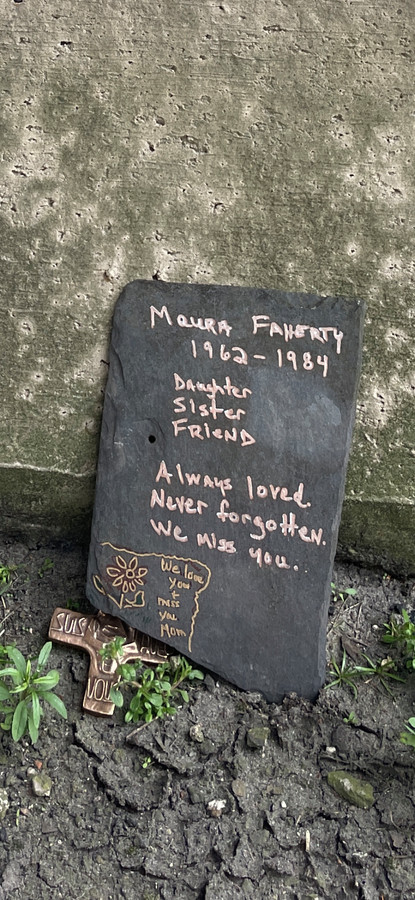 Moura Faherty
1962-1984
Daughter
Sister
Friend
Always loved.
Never forgotten.
We miss you.
We love
you +
miss
you
Mom
SUS
YOU